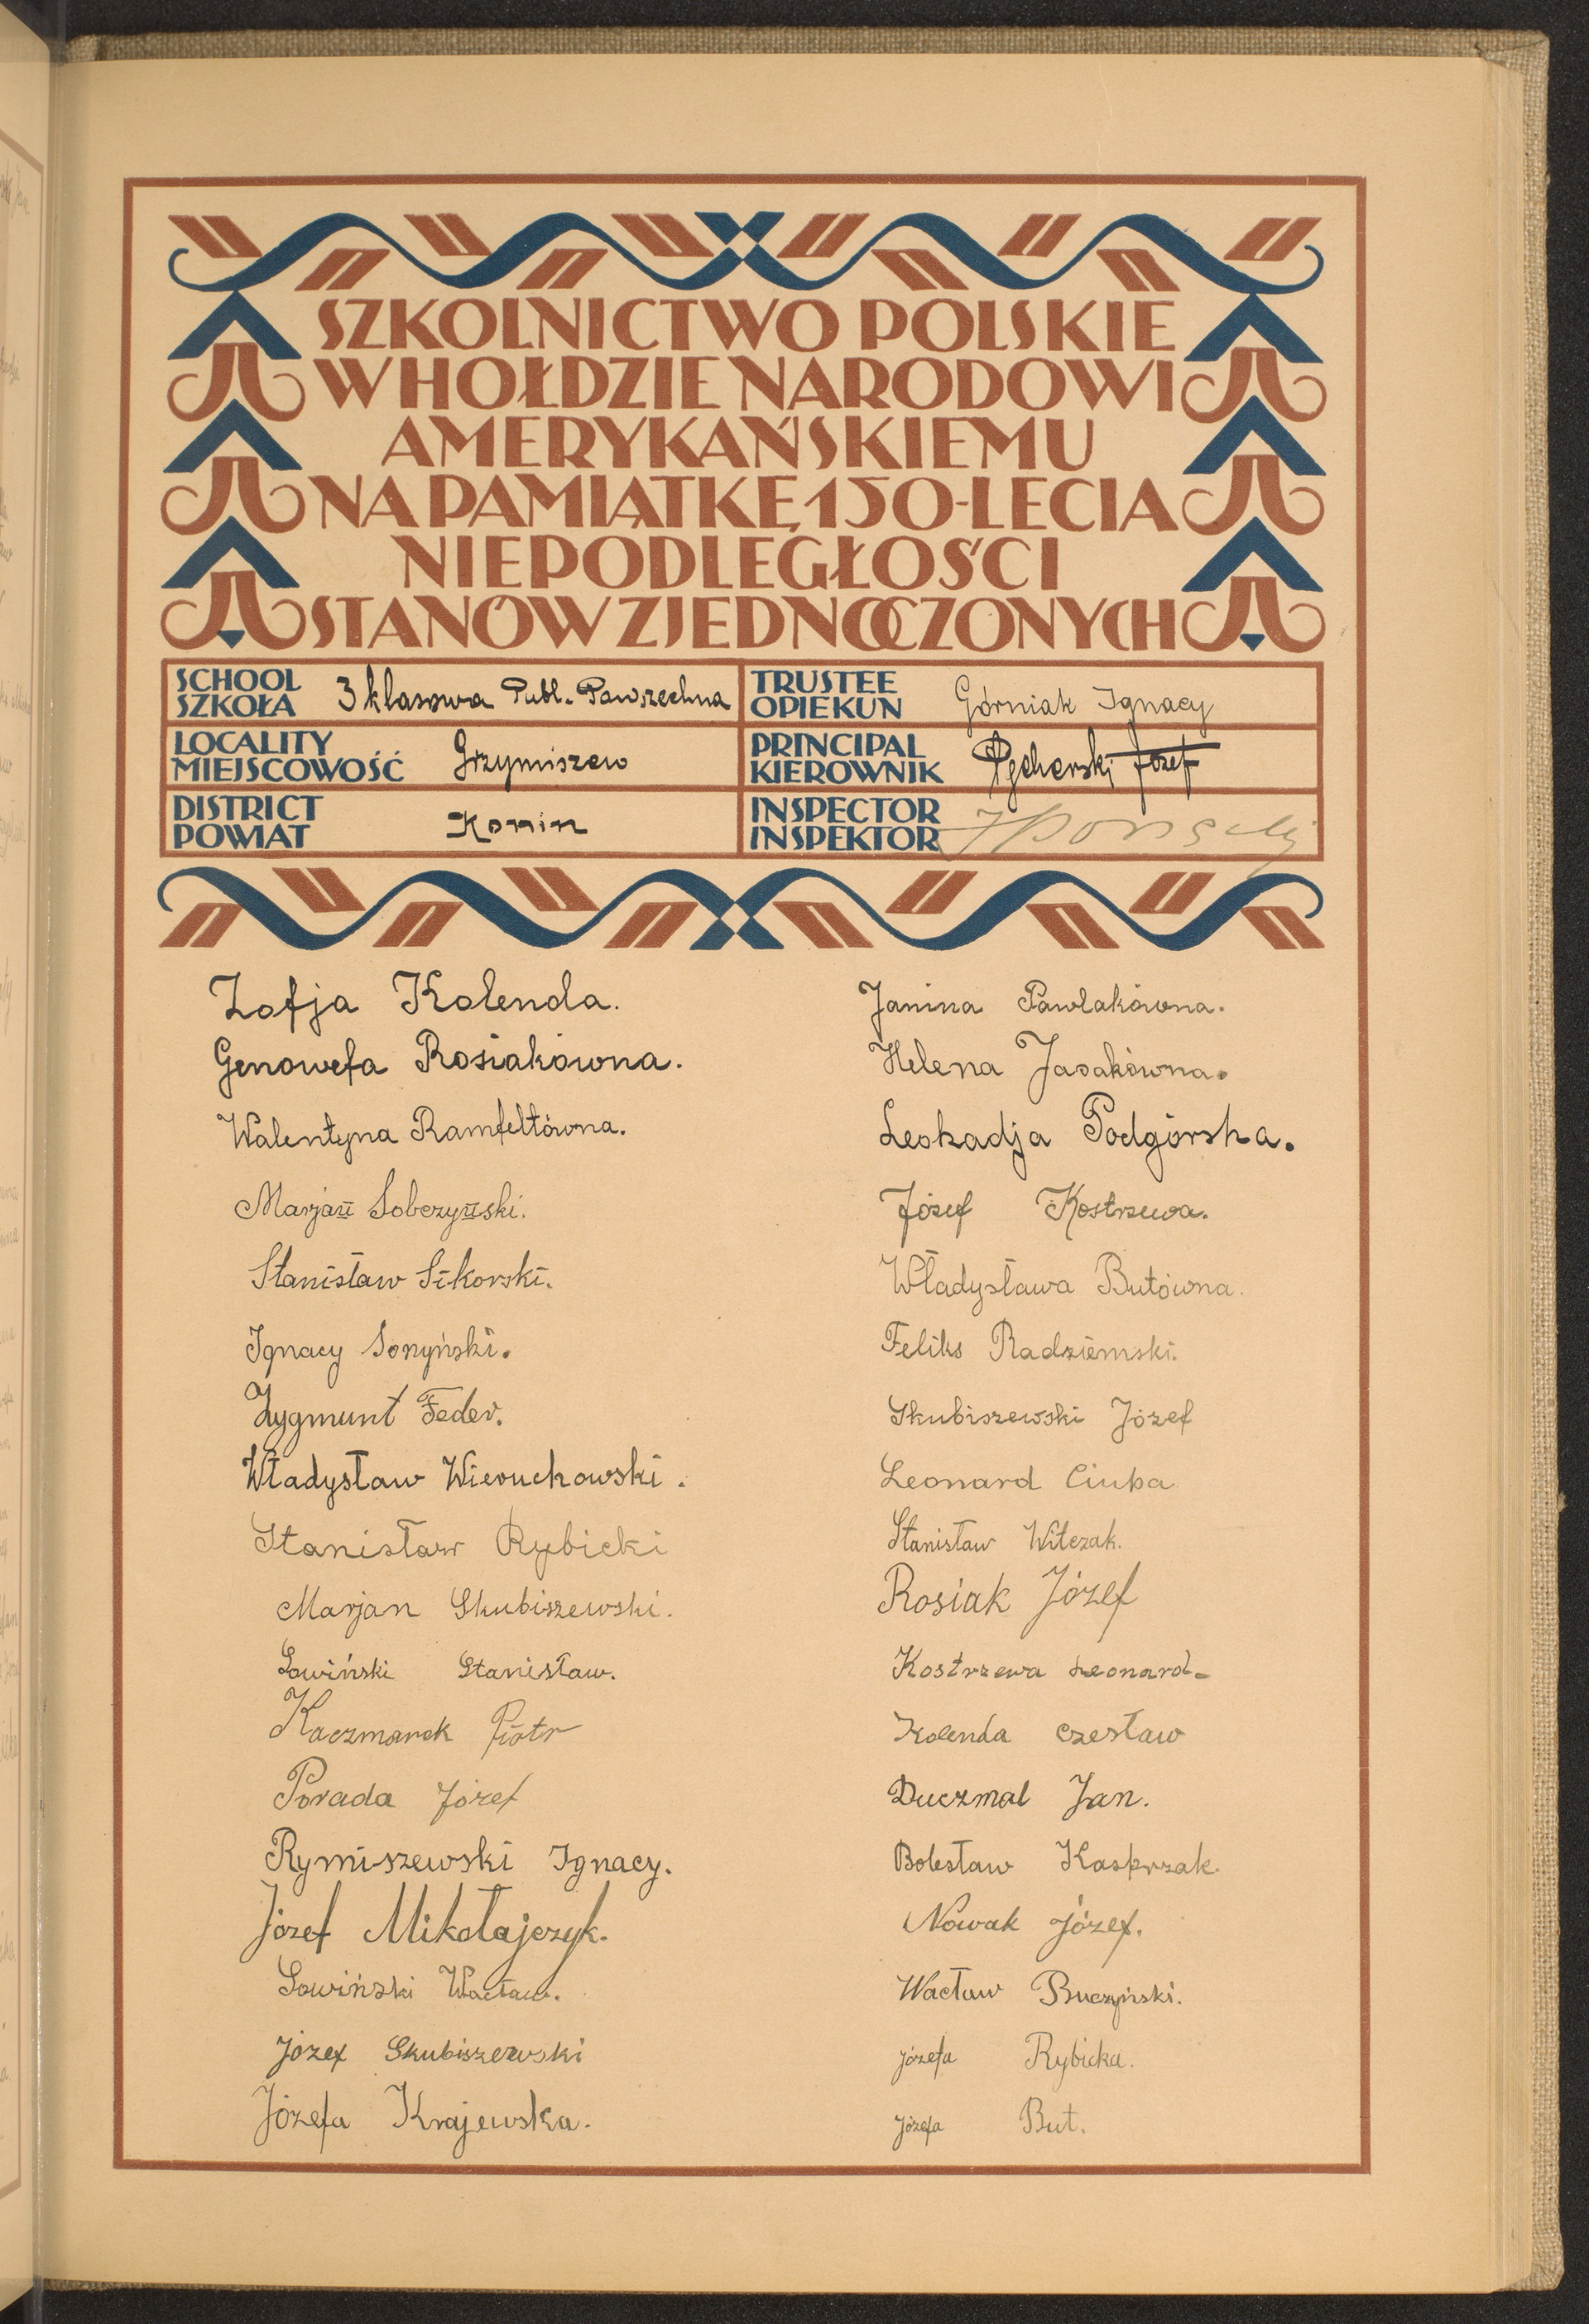 SZKOLNICTWO POLSKIE
W HOŁDZIE NARODOWI
AMERYKAŃSKIEMU
NA PAMIĄTKĘ 150-LECIA
NIEPODLEGŁOŚCI
STANÓW ZJEDNOCZONYCH
SCHOOL
SZKOŁA 3 klasowa Publ. Powszechna
TRUSTEE
OPIEKUN Górniak Ignacy
LOCALITY
MIEJSCOWOŚĆ Grzymiszew
PRINCIPAL
KIEROWNIK Pęcherski Józef
DISTRICT
POWIAT Konin
INSPECTOR
INSPEKTOR
Zofja Kolenda.
Genowefa Rosiakówna.
Walentyna Ramfeltówna.
Marjan Sobczyński.
Stanisław Sikorski.
Ignacy Sonyński.
Zygmunt Feder.
Władysław Wieruchowski.
Stanisław Rybicki
Marjan Skubiszewski.
Łowiński Stanisław.
Kaczmarek Piotr
Porada Józef
Rymiszewski Ignacy.
Józef Mikołajczyk.
Łowiński Wacław.
Józef Skubiszewski
Józefa Krajewska.
Janina Pawlakówna.
Helena Jasakówna.
Leokadja Podgórska.
Józef Kostrzewa.
Władysława Butówna.
Feliks Radziemski.
Skubiszewski Józef
Leonard Ciuba
Stanisław Witczak.
Rosiak Józef
Kostrzewa Leonard
Kolenda Czesław
Duczmal Jan.
Bolesław Kasprzak.
Nowak Józef.
Wacław Buczyński.
Józefa Rybicka.
Józefa But.